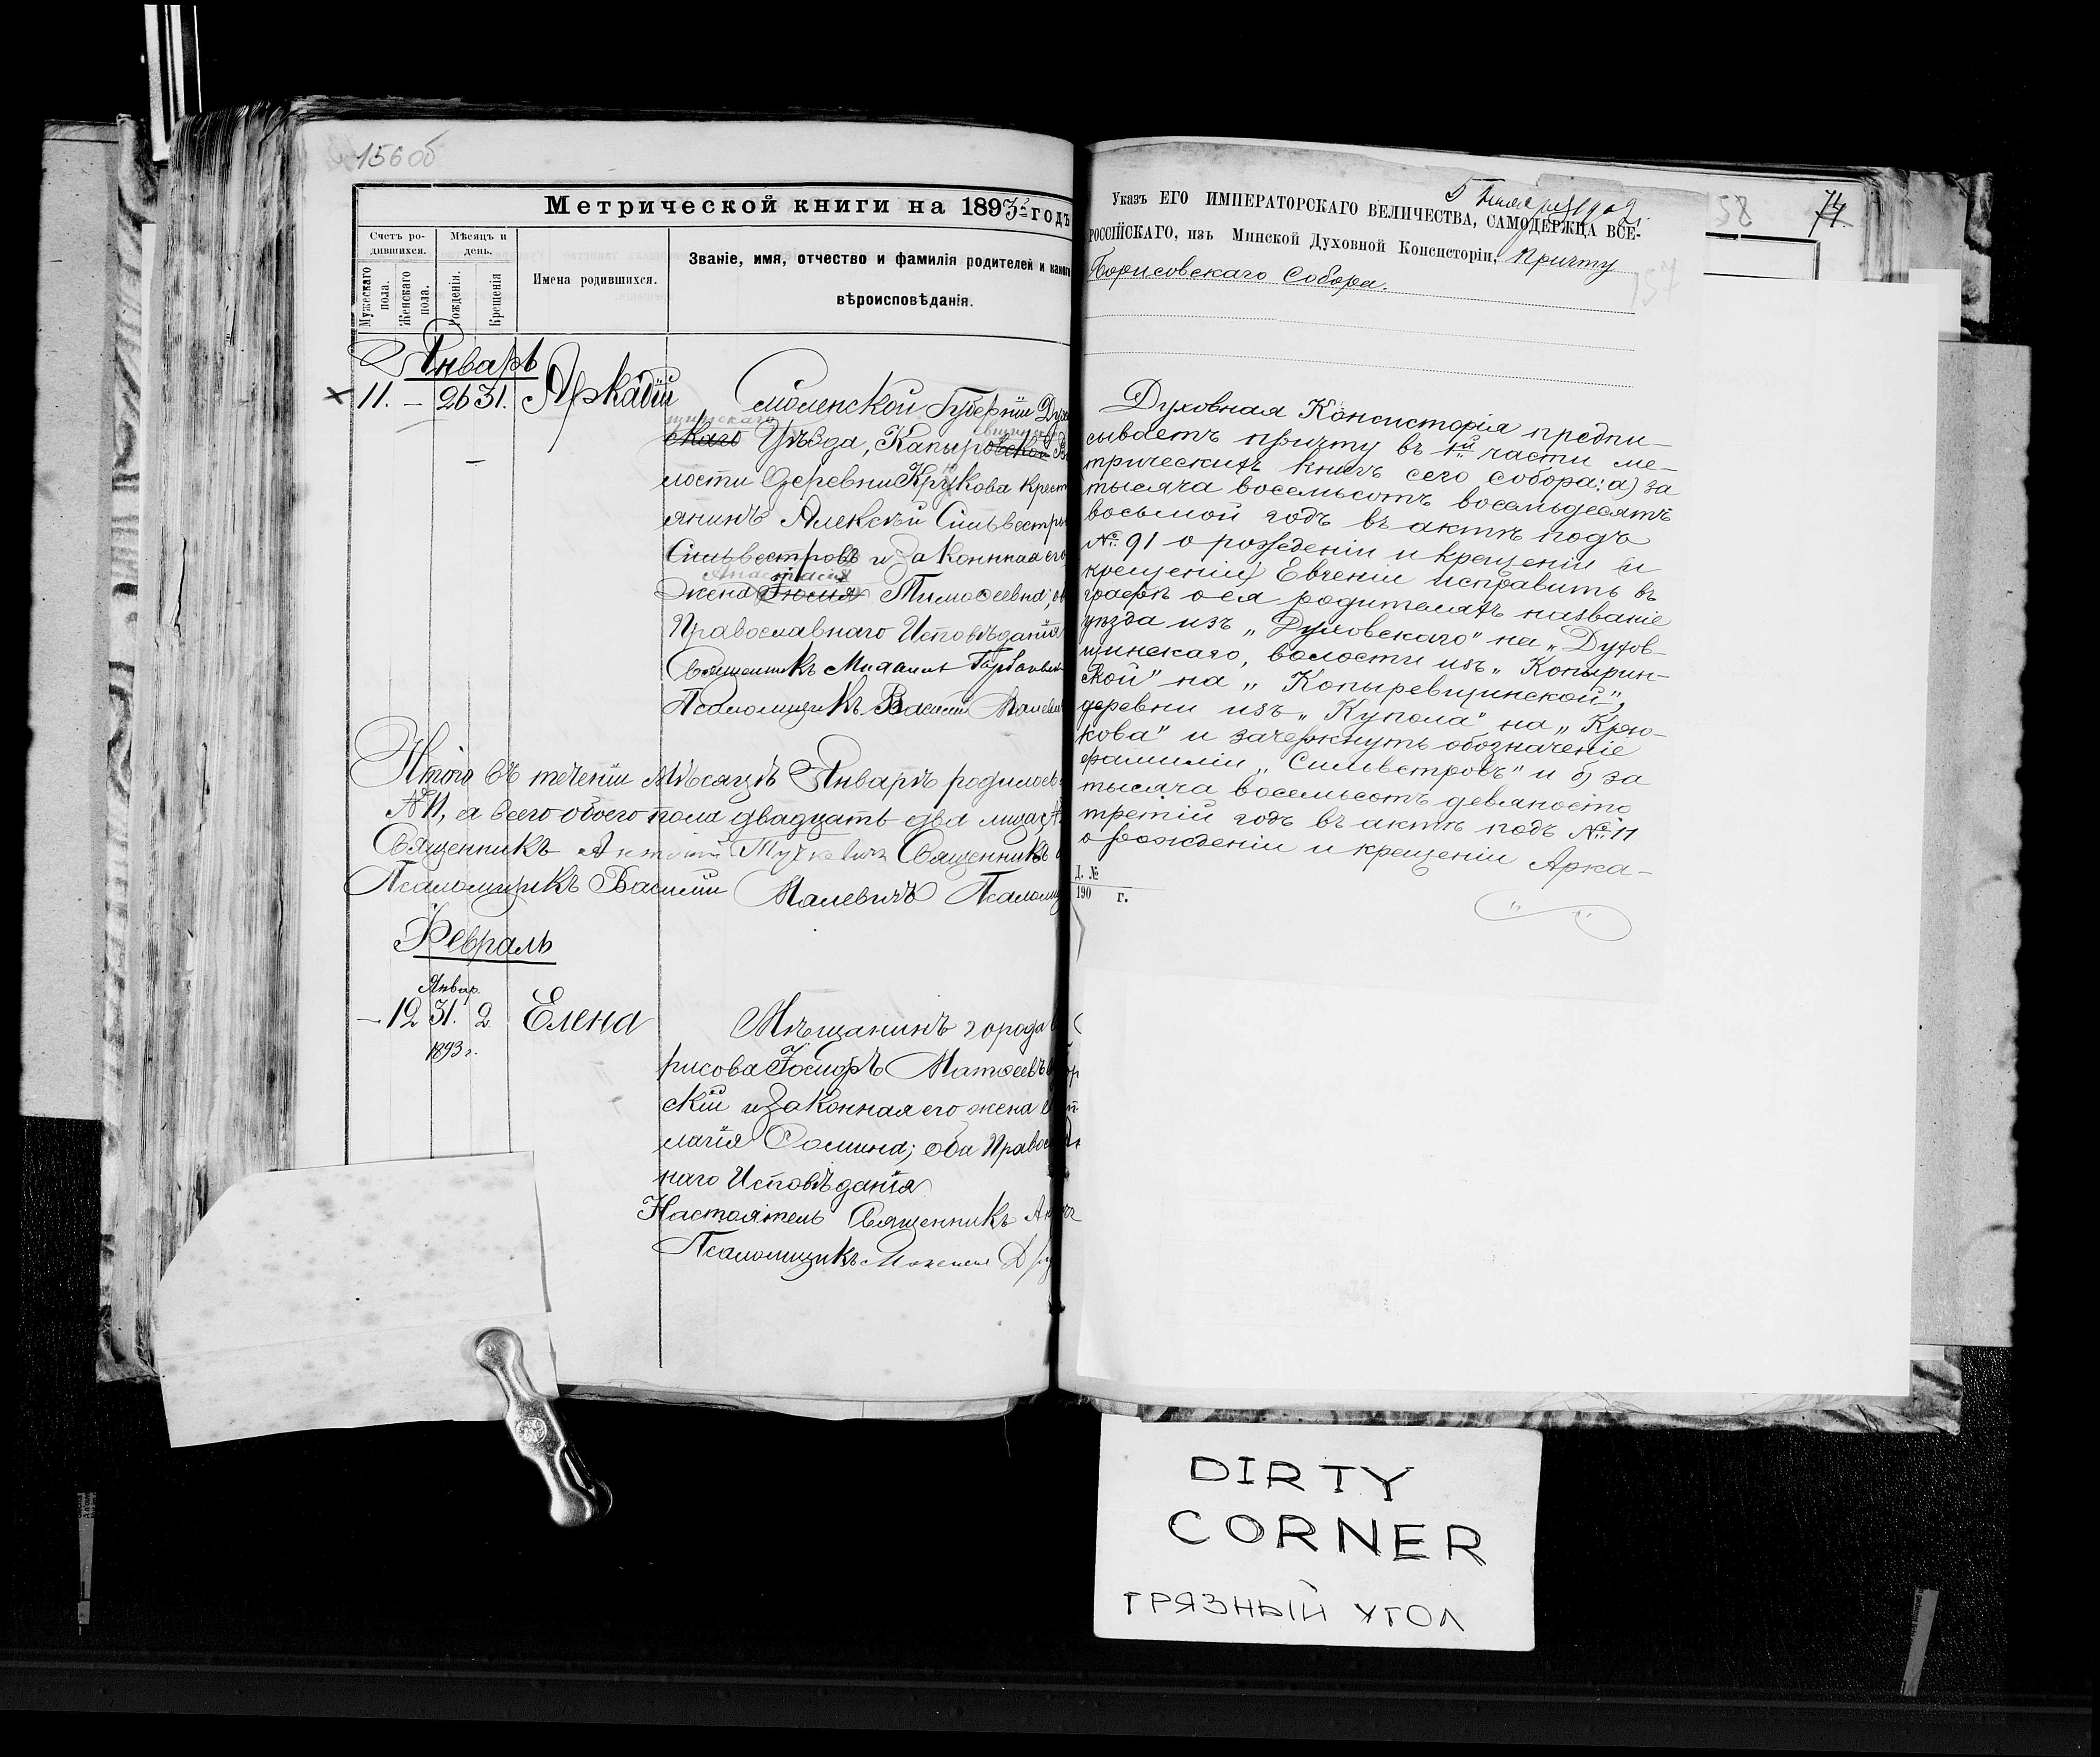 156об
Метрической книги на 1893й годъ
Счетъ ро-
дившихся.
Мѣсяцъ и
день.
Мужескаго
пола.
Женскаго
пола.
Рожденія.
Крещенія
Имена родившихся.
Званіе, имя, отчество и фамилія родителей и какого
вѣроисповѣданія.
Январь
11. — 26 31. Аркадій
Смоленской Губерніи Дух
щинскаго
скаго Уѣзда, Капыровской В
вщинск
лости Деревни Крюкова Крест
янинъ Алексѣй Сильвестр
Сильвестровъ и законная его
Анастасія
жена Тимоѳеевна, об
Православнаго Исповѣданія
Священникъ Михаилъ
Псаломщикъ Василій Малеви
Итого въ теченіи Мѣсяцѣ Январѣ родилось
№ 11, а всего обоего пола двадцать два лица
Священникъ Антоній Священникъ
Псаломщикъ Василій Малевичъ Псалом
Февраль
Январ.
— 12 31. 2 Елена
1893 г.
Мѣщанинъ города
рисова Іосифъ Матѳеевъ
скій и законная его жена
лагія Ѳомина; оба Право
наго Исповѣданія
Настоятель Священникъ Ан
Псаломщикъ
5 1902 г.
58
74
157
Указъ ЕГО ИМПЕРАТОРСКАГО ВЕЛИЧЕСТВА, САМОДЕРЖЦА ВСЕ-
РОССІЙСКАГО, изъ Минской Духовной Консисторіи, Причту
Борисовскаго Собора.
Духовная Консисторія предпи-
сываетъ причту въ 1й части ме-
трическихъ книгъ сего собора: а) за
тысяча восемьсотъ восемьдесятъ
восьмой годъ въ актѣ подъ
№ 91 о рожденіи и крещеніи (и
крещеніи) Евгеніи исправить въ
графѣ о ея родителяхъ названіе
уѣзда изъ „Духовскаго" на „Духов-
щинскаго, волости изъ „Копырин-
ской" на „Копыревщинской",
деревни изъ „Купола" на „Крю-
кова" и зачеркнуть обозначеніе
фамиліи „Сильвестровъ" и б) за
тысяча восемьсотъ девяносто
третій годъ въ актѣ подъ № 11
о рожденіи и крещеніи Арка-
Д. №
190 г.
DIRTY
CORNER
ГРЯЗНЫЙ УГОЛ